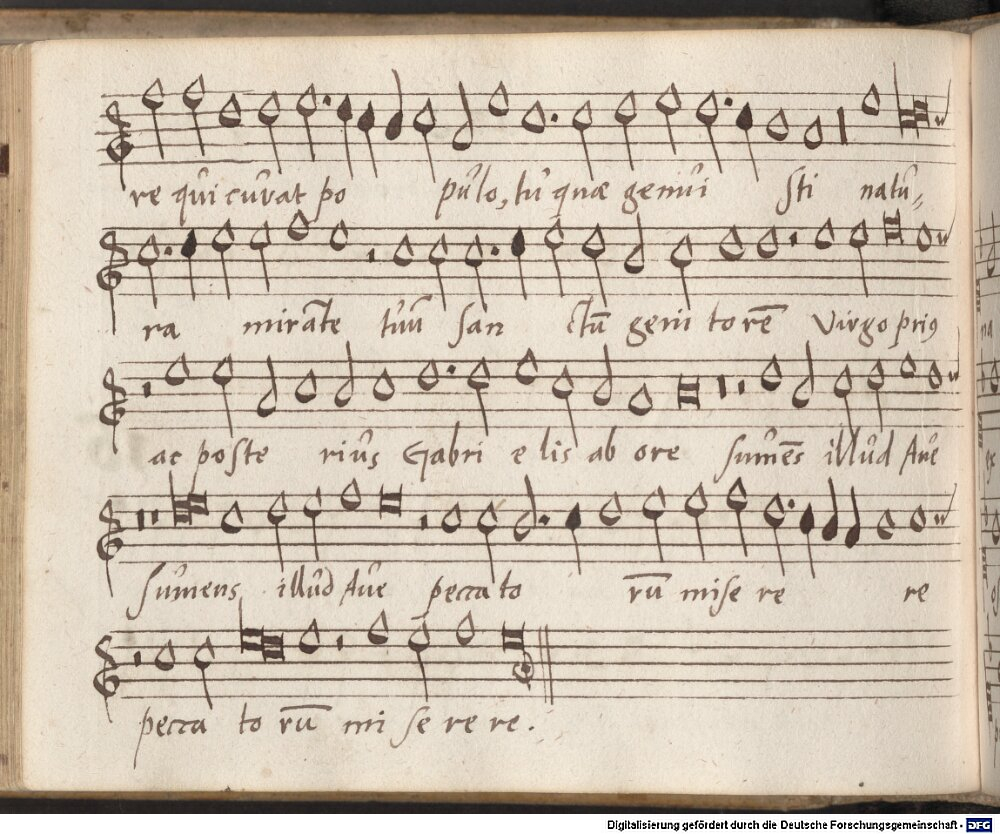 re qui curat po pulo, tu quæ genui sti natu,
ra mirāte tuū san ctū geni torē Virgo prius
ac poste rius Gabri elis ab ore sumēs illud Ave
sumens illud Ave pecca to rū mise re re
pecca to rū mi se re re.
Digitalisierung gefördert durch die Deutsche Forschungsgemeinschaft - DFG